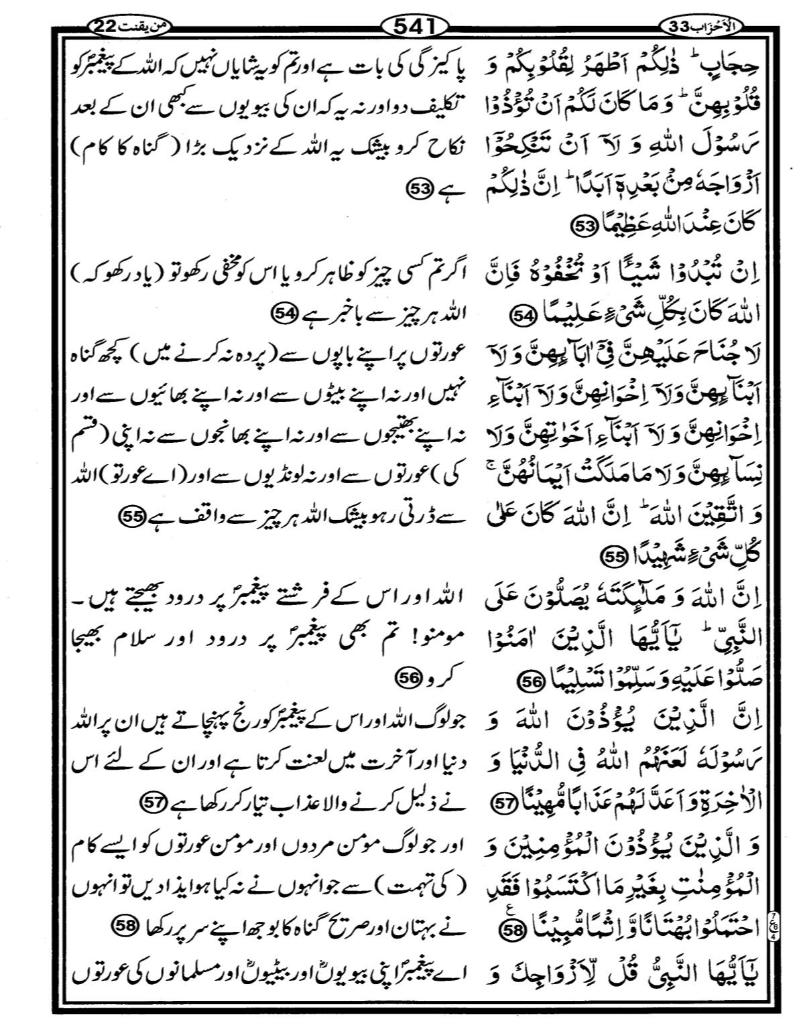 الاَحْزَاب 33
541
من یقنت 22
حِجَابٍ ؕ ذٰلِكُمْ اَطْهَرُ لِقُلُوْبِكُمْ وَ
قُلُوْبِهِنَّ ؕ وَمَا كَانَ لَكُمْ اَنْ تُؤْذُوْا
رَسُوْلَ اللّٰهِ وَ لَاۤ اَنْ تَنْكِحُوْۤا
اَزْوَاجَهٗ مِنْۢ بَعْدِهٖۤ اَبَدًا ؕ اِنَّ ذٰلِكُمْ
كَانَ عِنْدَ اللّٰهِ عَظِيْمًا 53
اِنْ تُبْدُوْا شَيْـًٔا اَوْ تُخْفُوْهُ فَاِنَّ
اللّٰهَ كَانَ بِكُلِّ شَیْءٍ عَلِيْمًا 54
لَا جُنَاحَ عَلَيْهِنَّ فِیْۤ اٰبَآىِٕهِنَّ وَلَاۤ
اَبْنَآىِٕهِنَّ وَلَاۤ اِخْوَانِهِنَّ وَلَاۤ اَبْنَآءِ
اِخْوَانِهِنَّ وَلَاۤ اَبْنَآءِ اَخَوٰتِهِنَّ وَلَا
نِسَآىِٕهِنَّ وَلَا مَا مَلَكَتْ اَيْمَانُهُنَّ ۚ
وَ اتَّقِيْنَ اللّٰهَ ؕ اِنَّ اللّٰهَ كَانَ عَلٰی
كُلِّ شَیْءٍ شَهِيْدًا 55
اِنَّ اللّٰهَ وَ مَلٰٓىِٕكَتَهٗ يُصَلُّوْنَ عَلَی
النَّبِیِّ ؕ يٰۤاَيُّهَا الَّذِيْنَ اٰمَنُوْا
صَلُّوْا عَلَيْهِ وَسَلِّمُوْا تَسْلِيْمًا 56
اِنَّ الَّذِيْنَ يُؤْذُوْنَ اللّٰهَ وَ
رَسُوْلَهٗ لَعَنَهُمُ اللّٰهُ فِی الدُّنْيَا وَ
الْاٰخِرَةِ وَاَعَدَّ لَهُمْ عَذَابًا مُّهِيْنًا 57
وَ الَّذِيْنَ يُؤْذُوْنَ الْمُؤْمِنِيْنَ وَ
الْمُؤْمِنٰتِ بِغَيْرِ مَا اكْتَسَبُوْا فَقَدِ
احْتَمَلُوْا بُهْتَانًا وَّ اِثْمًا مُّبِيْنًا 58
يٰۤاَيُّهَا النَّبِیُّ قُلْ لِّاَزْوَاجِكَ وَ
پاکیزگی کی بات ہے اور تم کو یہ شایاں نہیں کہ اللہ کے پیغمبرؐ کو
تکلیف دو اور نہ یہ کہ ان کی بیویوں سے کبھی ان کے بعد
نکاح کرو بیشک یہ اللہ کے نزدیک بڑا (گناہ کا کام)
ہے 53
اگر تم کسی چیز کو ظاہر کرو یا اس کو مخفی رکھو تو (یاد رکھو کہ)
اللہ ہر چیز سے باخبر ہے 54
عورتوں پر اپنے باپوں سے (پردہ نہ کرنے میں) کچھ گناہ
نہیں اور نہ اپنے بیٹوں سے اور نہ اپنے بھائیوں سے اور
نہ اپنے بھتیجوں سے اور نہ اپنے بھانجوں سے نہ اپنی (قسم
کی) عورتوں سے اور نہ لونڈیوں سے اور (اے عورتو) اللہ
سے ڈرتی رہو بیشک اللہ ہر چیز سے واقف ہے 55
اللہ اور اس کے فرشتے پیغمبرؐ پر درود بھیجتے ہیں۔
مومنو! تم بھی پیغمبرؐ پر درود اور سلام بھیجا
کرو 56
جو لوگ اللہ اور اس کے پیغمبرؐ کو رنج پہنچاتے ہیں ان پر اللہ
دنیا اور آخرت میں لعنت کرتا ہے اور ان کے لئے اس
نے ذلیل کرنے والا عذاب تیار کر رکھا ہے 57
اور جو لوگ مؤمن مردوں اور مؤمن عورتوں کو ایسے کام
(کی تہمت) سے جو انہوں نے نہ کیا ہو ایذا دیں تو انہوں
نے بہتان اور صریح گناہ کا بوجھ اپنے سر پر رکھا 58
اے پیغمبرؐ اپنی بیویوںؓ اور بیٹیوںؓ اور مسلمانوں کی عورتوں